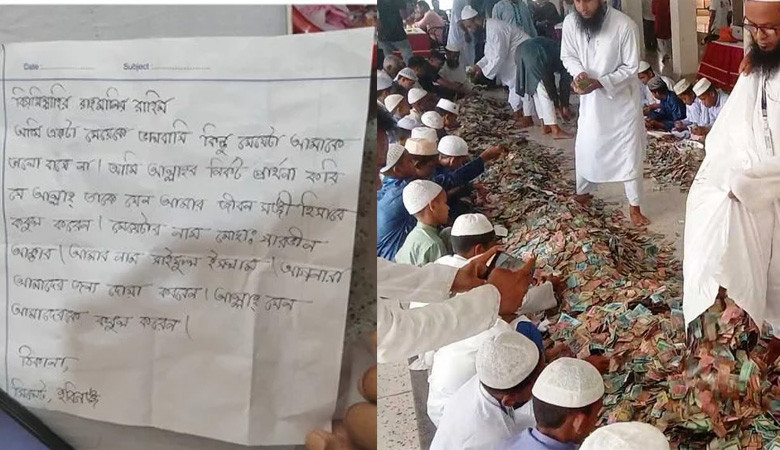 Date: Subject:
বিসমিল্লাহির রাহমানির রাহিম
আমি একটা মেয়েকে ভালবাসি কিন্তু মেয়েটা আমাকে
ভালো বাসে না। আমি আল্লাহর নিকট প্রার্থনা করি
যে আল্লাহ তাকে যেন আমার জীবন সঙ্গী হিসাবে
কবুল করেন। মেয়েটার নাম মোছাঃ শারমীন
আক্তার। আমার নাম সাইফুল ইসলাম। আপনারা
আমাদের জন্য দোয়া করবেন। আল্লাহ যেন
আমাদেরকে কবুল করেন।
ঠিকানা,
সিলেট, হবিগঞ্জ